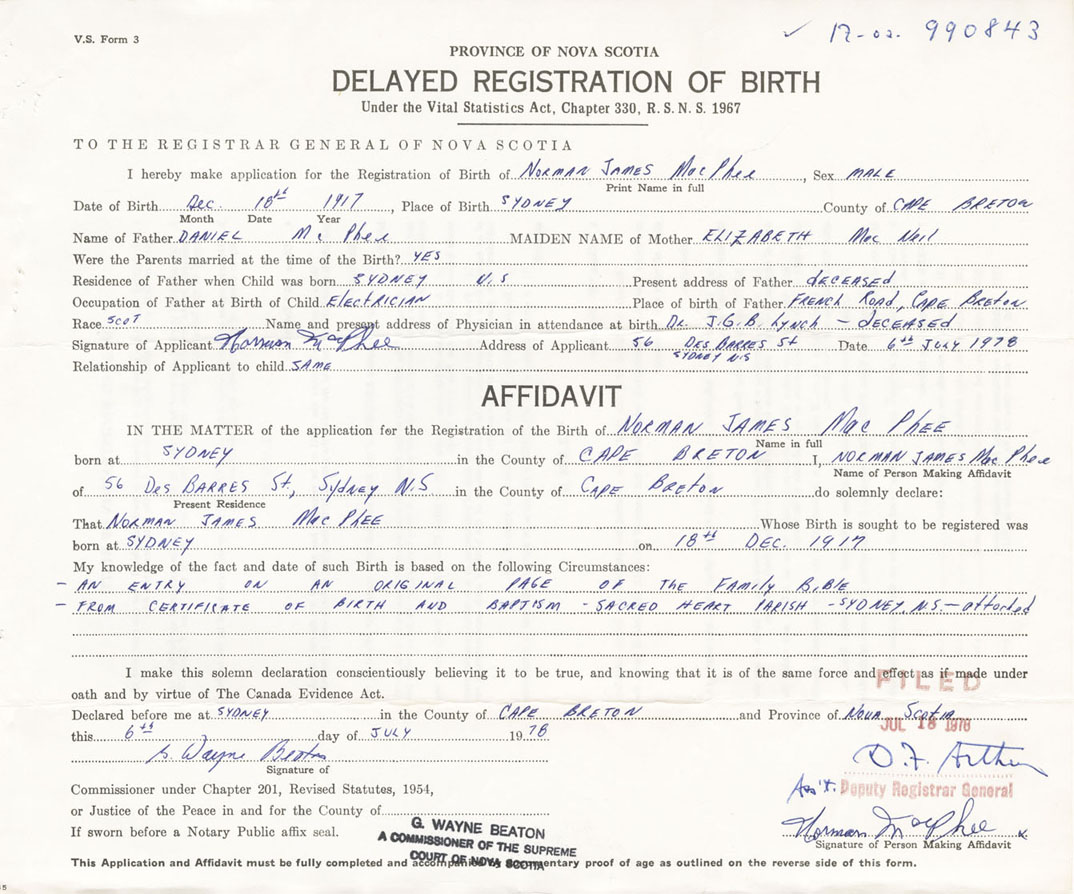 V.S. Form 3
✓ 990843
PROVINCE OF NOVA SCOTIA
DELAYED REGISTRATION OF BIRTH
Under the Vital Statistics Act, Chapter 330, R.S.N.S. 1967
TO THE REGISTRAR GENERAL OF NOVA SCOTIA
I hereby make application for the Registration of Birth of NORMAN JAMES MacPhee, Sex MALE
Print Name in full
Date of Birth DEC. 18th 1917, Place of Birth SYDNEY County of CAPE BRETON
Month Date Year
Name of Father DANIEL McPhee MAIDEN NAME of Mother ELIZABETH MacNeil
Were the Parents married at the time of the Birth? YES
Residence of Father when Child was born SYDNEY N.S Present address of Father deceased
Occupation of Father at Birth of Child Electrician Place of birth of Father French Road, Cape Breton
Race SCOT Name and present address of Physician in attendance at birth Dr. J.G.B. Lynch - deceased
Signature of Applicant Norman MacPhee Address of Applicant 56 Des Barres St Date 6th July 1978
SYDNEY N.S
Relationship of Applicant to child SAME
AFFIDAVIT
IN THE MATTER of the application for the Registration of the Birth of NORMAN JAMES MacPhee
Name in full
born at SYDNEY in the County of CAPE BRETON I, NORMAN JAMES MacPhee
Name of Person Making Affidavit
of 56 Des Barres St, Sydney N.S in the County of Cape Breton do solemnly declare:
Present Residence
That NORMAN JAMES MacPhee Whose Birth is sought to be registered was
born at SYDNEY on 18th DEC. 1917
My knowledge of the fact and date of such Birth is based on the following Circumstances:
- AN ENTRY ON AN ORIGINAL PAGE OF THE Family Bible
- FROM CERTIFICATE OF BIRTH AND BAPTISM - SACRED HEART PARISH - SYDNEY, N.S. - attached
I make this solemn declaration conscientiously believing it to be true, and knowing that it is of the same force and effect as if made under
FILED
oath and by virtue of The Canada Evidence Act.
Declared before me at SYDNEY in the County of CAPE BRETON and Province of Nova Scotia
JUL 18 1978
this 6th day of JULY 1978
G. Wayne Beaton
Signature of
D. F. Arthur
Commissioner under Chapter 201, Revised Statutes, 1954,
Ass't. Deputy Registrar General
or Justice of the Peace in and for the County of
Norman MacPhee
If sworn before a Notary Public affix seal.
Signature of Person Making Affidavit
G. WAYNE BEATON
A COMMISSIONER OF THE SUPREME
COURT OF NOVA SCOTIA
This Application and Affidavit must be fully completed and accompanied by documentary proof of age as outlined on the reverse side of this form.